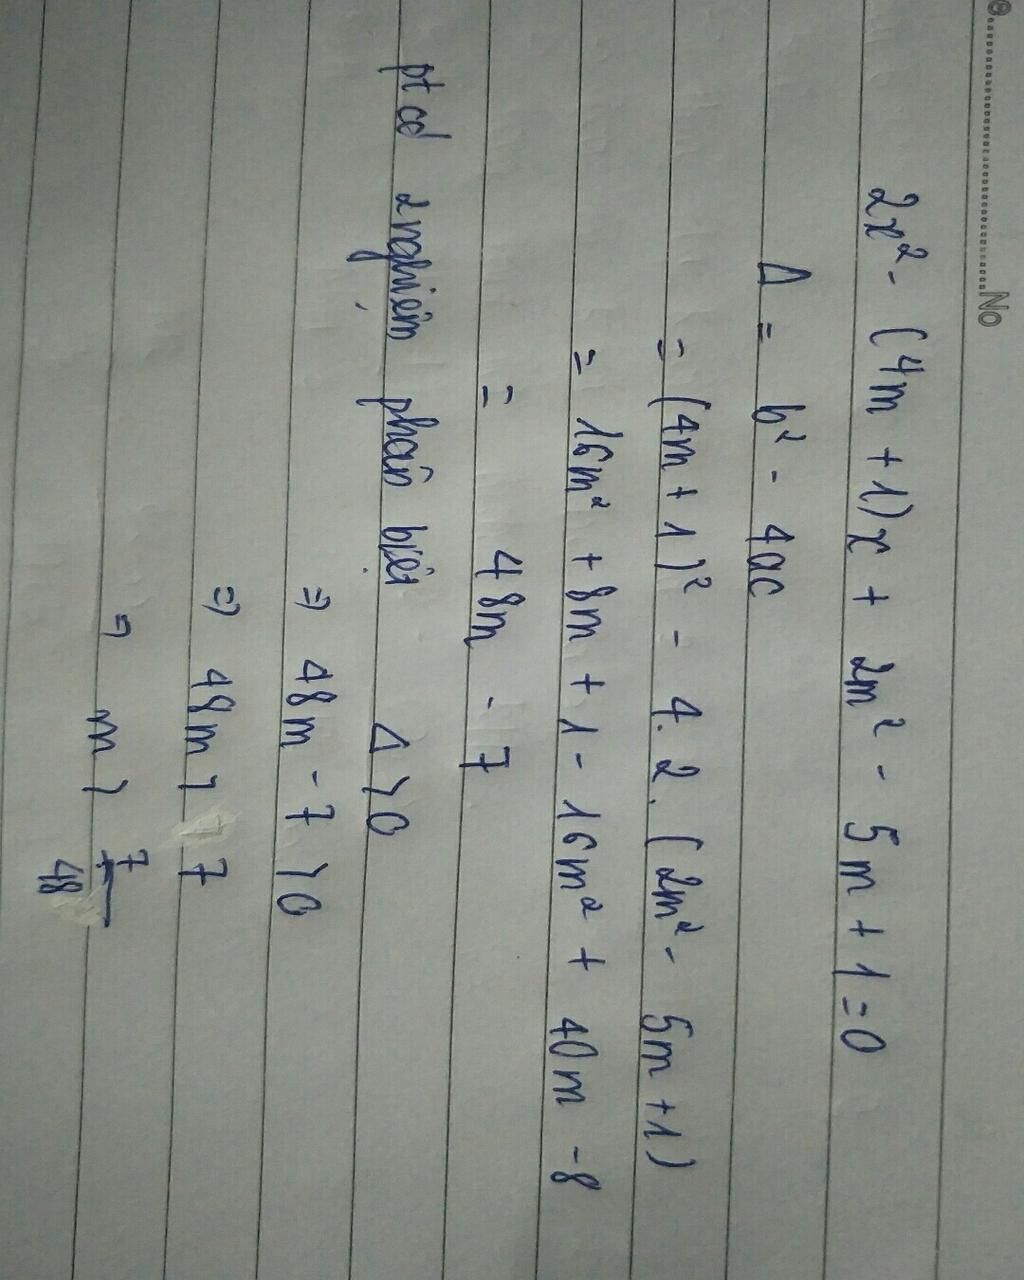 No
2x² - (4m + 1)x + 2m² - 5m + 1 = 0
Δ = b² - 4ac
= (4m + 1)² - 4.2.(2m² - 5m + 1)
= 16m² + 8m + 1 - 16m² + 40m - 8
= 48m - 7
pt có 2 nghiệm phân biệt Δ > 0
=> 48m - 7 > 0
=> 48m > 7
=> m > 7/48